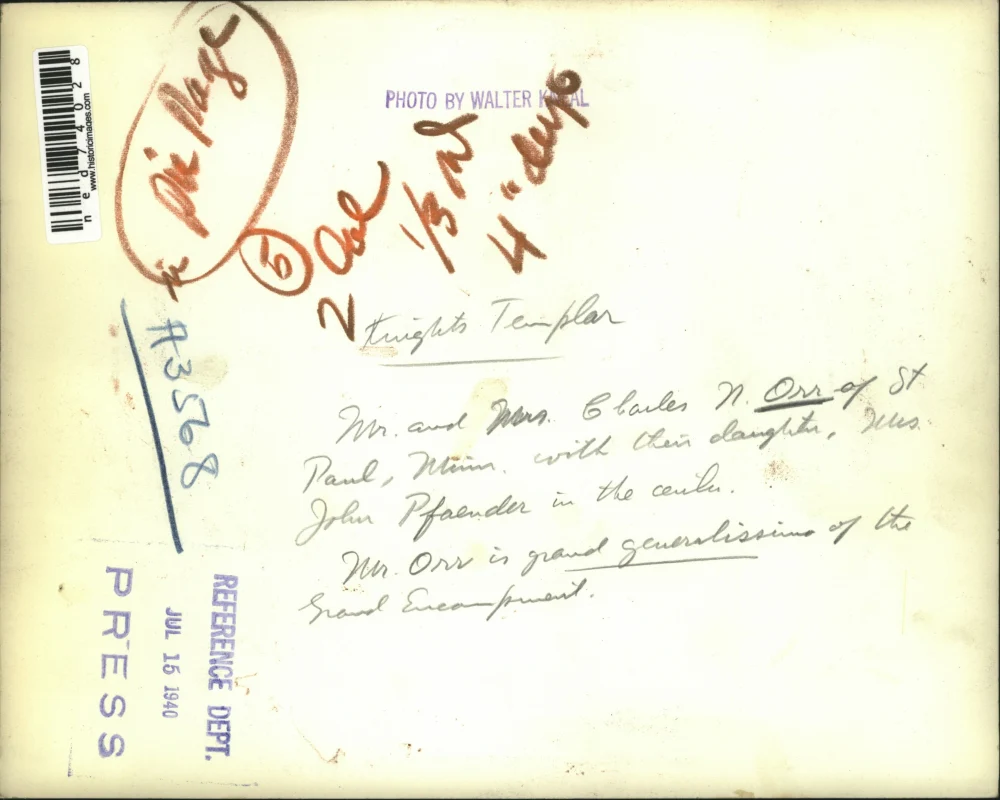 PHOTO BY WALTER
in Pix Page
5
2 col
1/3
4" deep
Knights Templar
Mr. and Mrs. Charles N. Orr of St
Paul, Minn. with their daughter, Mrs.
John Pfaender in the center.
Mr. Orr is grand generalissimo of the
Grand Encampment.
A3568
REFERENCE DEPT.
JUL 15 1940
PRESS
ned74028
www.historicimages.com